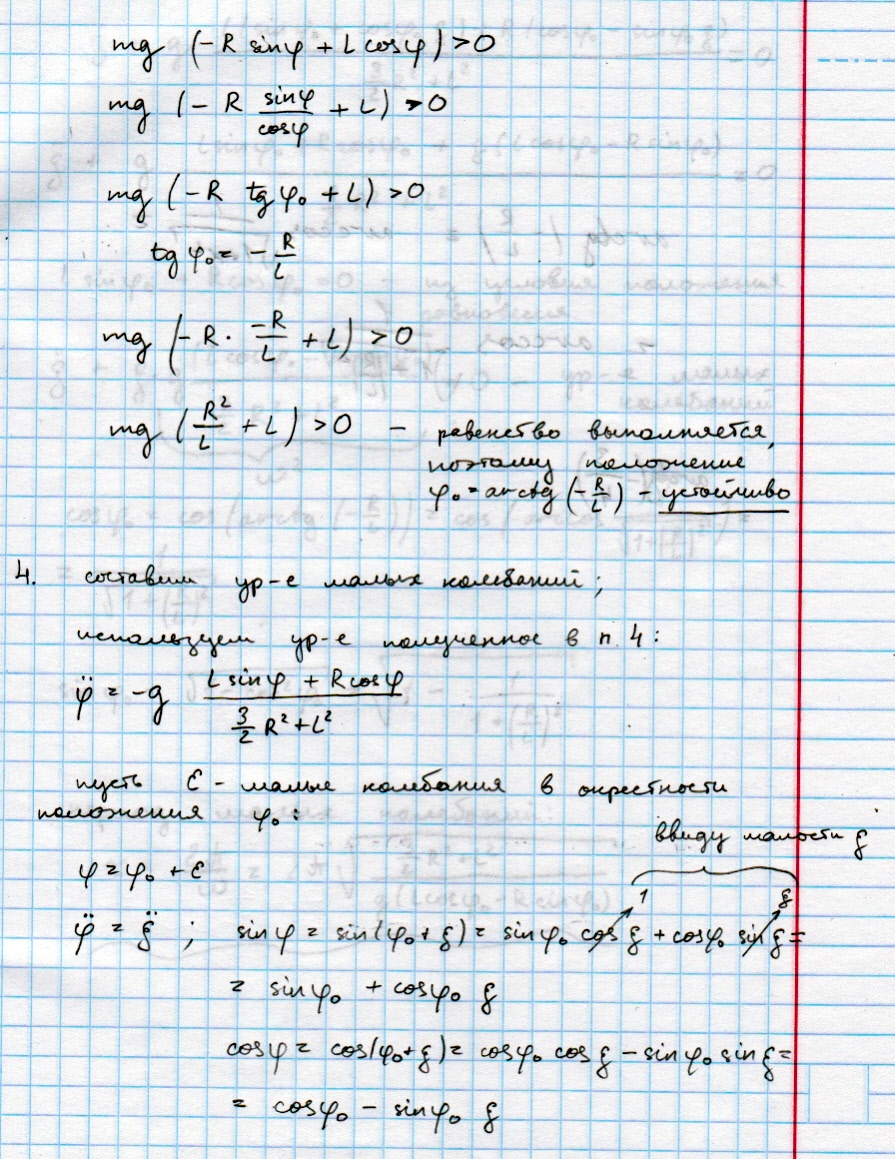 mg (-R sinφ + L cosφ) > 0
mg (-R sinφ/cosφ + L) > 0
mg (-R tgφ₀ + L) > 0
tgφ₀ = -R/L
mg (-R · -R/L + L) > 0
mg (R²/L + L) > 0 - равенство выполняется,
поэтому положение
φ₀ = arctg(-R/L) - устойчиво
4. составим ур-е малых колебаний;
используем ур-е полученное в п. 4:
φ̈ = -g (L sinφ + R cosφ)/(3/2 R² + L²)
пусть ε - малые колебания в окрестности
положения φ₀:
ввиду малости ξ
φ = φ₀ + ε
1 ξ
φ̈ = ξ̈ ; sinφ = sin(φ₀ + ξ) = sinφ₀ cos ξ + cosφ₀ sin ξ =
= sinφ₀ + cosφ₀ ξ
cosφ = cos(φ₀ + ξ) = cosφ₀ cos ξ - sinφ₀ sin ξ =
= cosφ₀ - sinφ₀ ξ